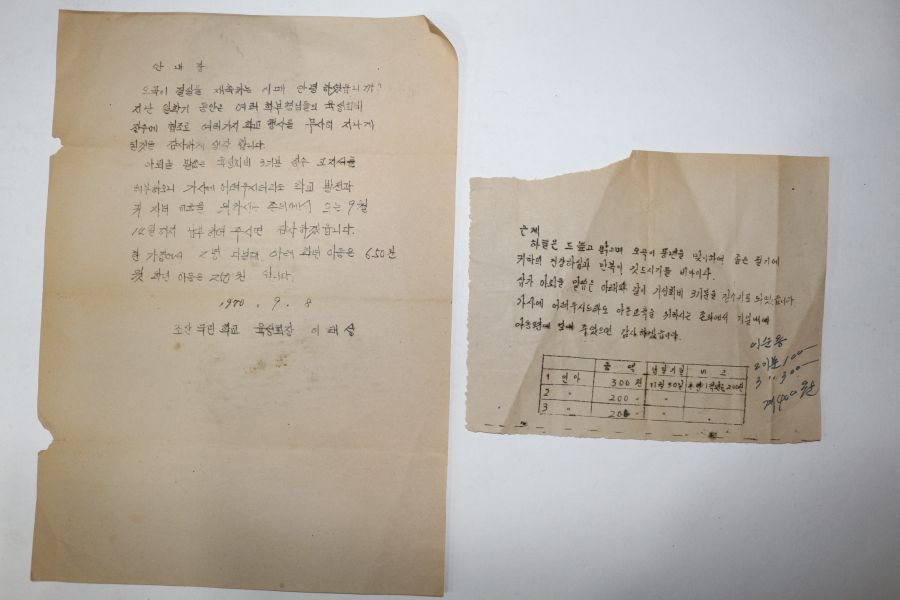 안 내 장
오곡이 결실을 재촉하는 이때 안녕 하셨습니까?
지난 일학기 동안은 여러 학부형님들의 육성회비
협조로 여러가지 학교 행사를 무사히 지나게
된것을 감사하게 생각 합니다.
아뢰올 말씀은 육성회비 3기분 징수
가사에 어려우시더라도 학교 발전과
교육을 위하시는 존의에서 오는 9월
까지 납부하여 주시면 감사하겠습니다.
한 가정에서 아래 학년 아동은 650원
윗 학년 아동은 원 입니다.
1970. 9. 8
조산 국민 학교 육성회장 이
근계
하늘은 드높고 맑으며 오곡이 풍년을 맞이하여 좋은 절기에
귀하의 건강하심과 만복이 깃드시기를 비나이다.
삼가 아뢰올 말씀은 아래와 같이 기성회비 3기분을 징수키로 되었습니다
가사에 어려우시드라도 아동교육을 위하시는 존의에서 기일내에
아동편에 보내 주셨으면 감사하겠습니다.
금 액 납입기일 비 고
1 인아 300원 11월 30일 200원
2 〃 200 〃 〃
3 〃 200 〃 〃
이순용
2기분 100
3 〃 300
계 400원